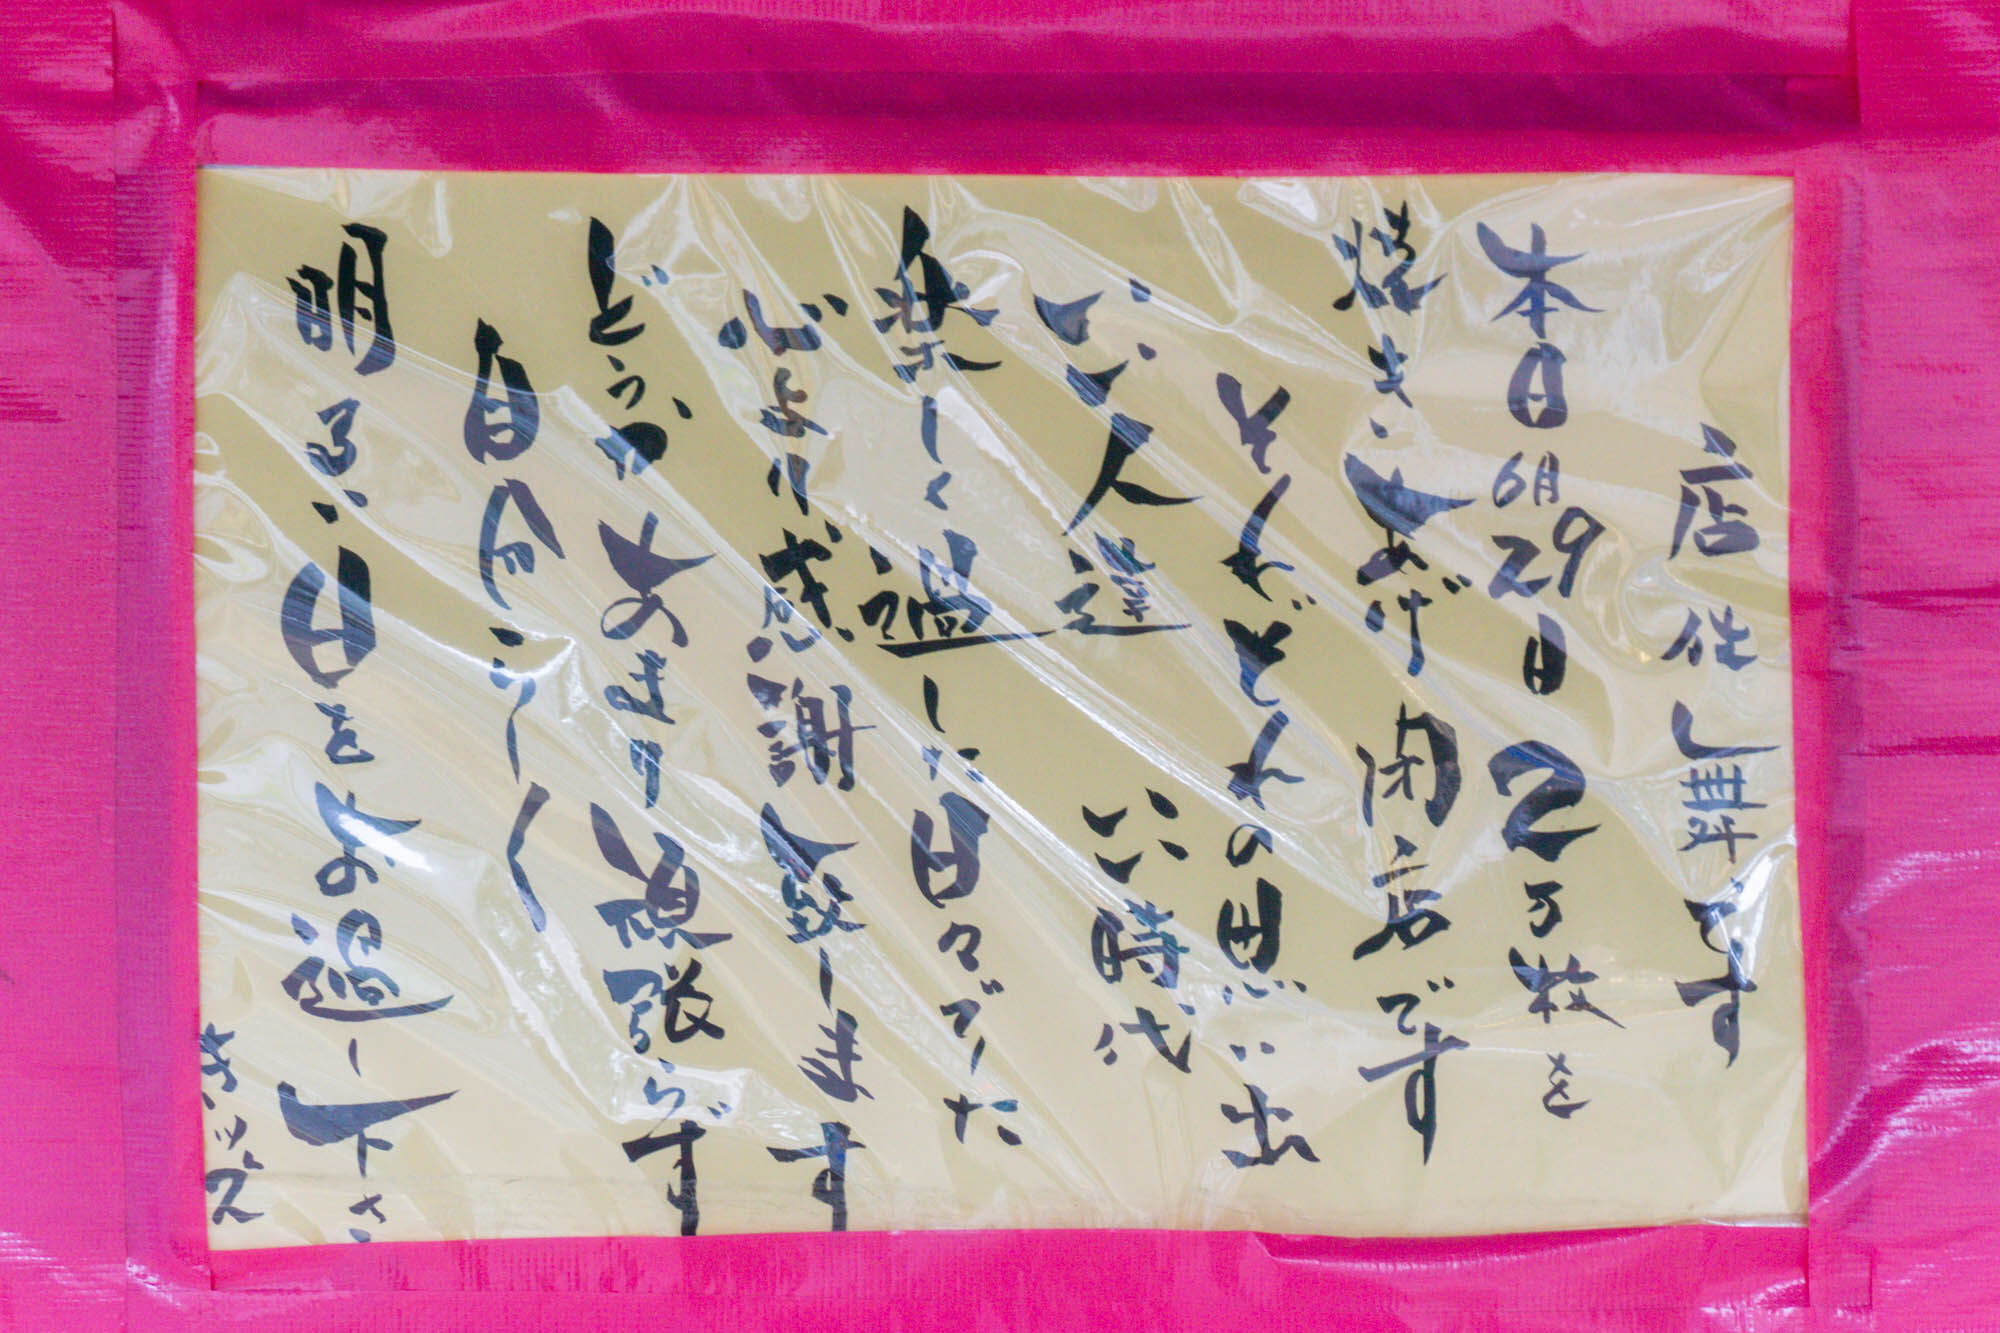 店仕舞です
本日6月29日 2万枚を
焼きあげ 閉店です
それぞれの思い出
いい人達 いい時代
楽しく過した日々でした
心より感謝致します
どうかあまり頑張らず
自分らしく
明るい日をお過し下さい
キッズ